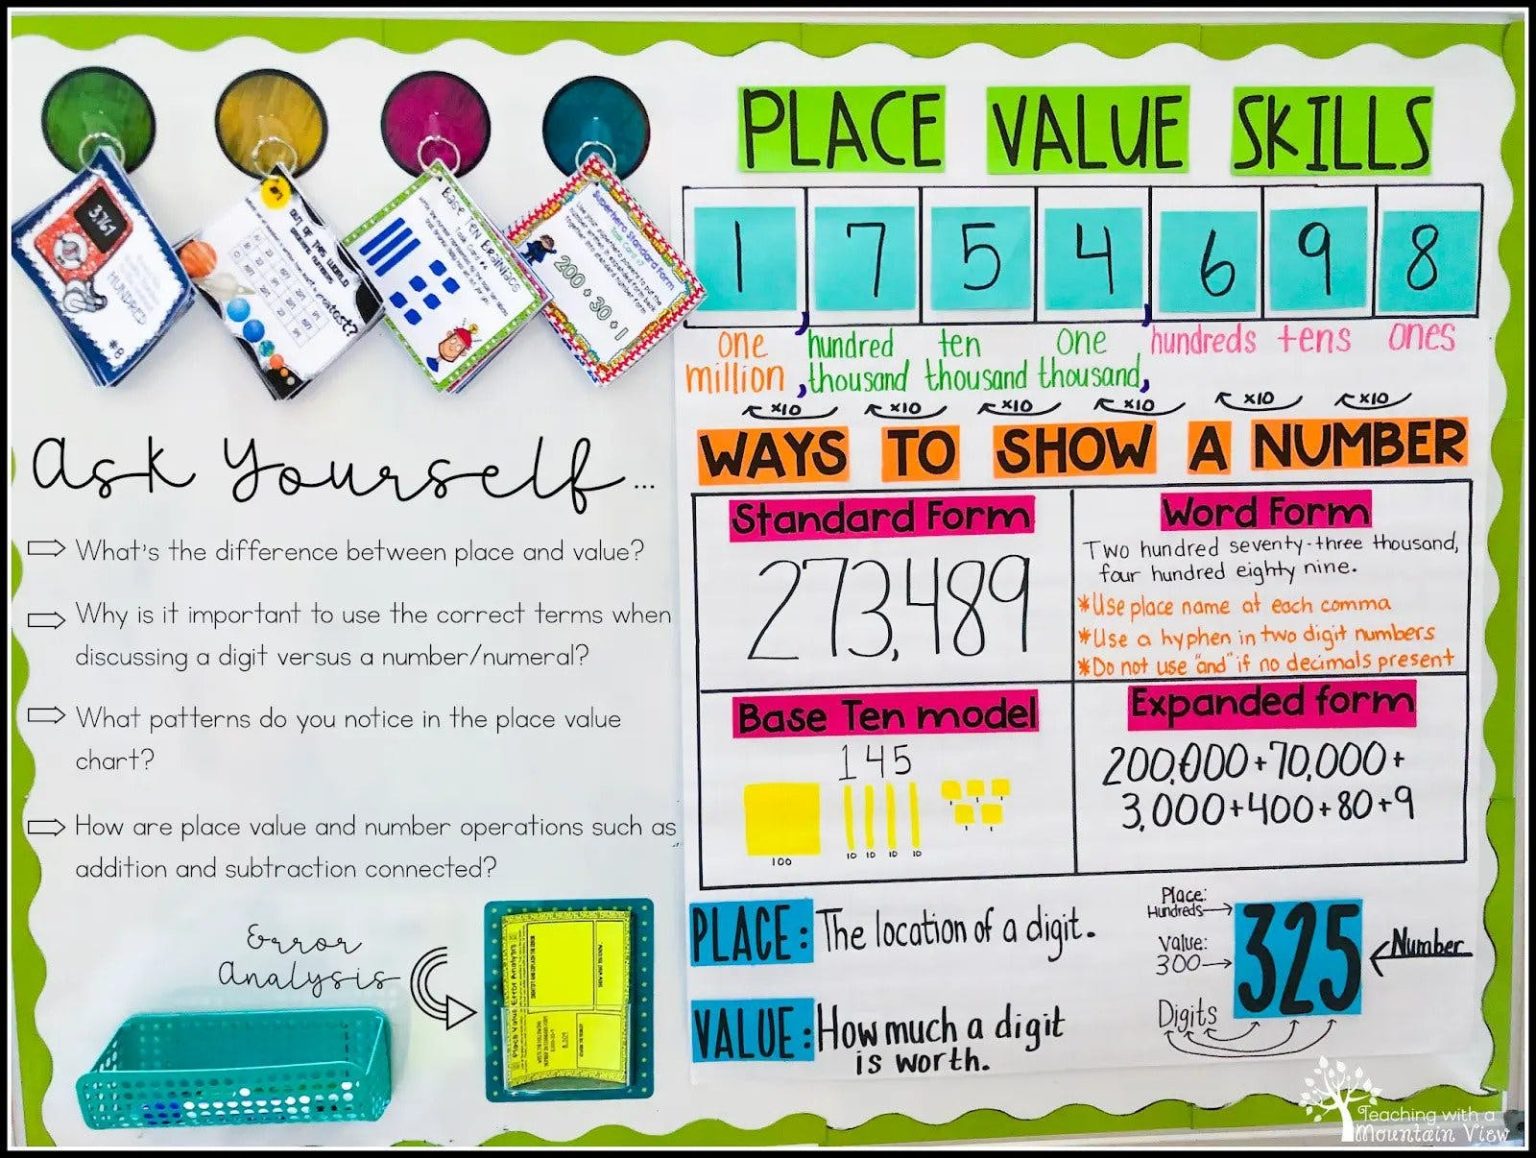 3,761
HUNDRED
#8
OUT OF THIS WORLD
greatest?
Base Ten Brainiacs
Task Card #4
Superhero Standard Form
200 + 30 + 1
Ask Yourself...
What's the difference between place and value?
Why is it important to use the correct terms when
discussing a digit versus a number/numeral?
What patterns do you notice in the place value
chart?
How are place value and number operations such as
addition and subtraction connected?
Error
Analysis
Place Value Error Analysis
PLACE VALUE SKILLS
1 , 7 5 4 , 6 9 8
one hundred ten one hundreds tens ones
million , thousand thousand thousand,
x10 x10 x10 x10 x10 x10
WAYS TO SHOW A NUMBER
Standard Form
273,489
Word Form
Two hundred seventy-three thousand,
four hundred eighty nine.
*Use place name at each comma
*Use a hyphen in two digit numbers
*Do not use "and" if no decimals present
Base Ten model
145
1 1 1
1 1
100 10 10 10 10
Expanded form
200,000+70,000+
3,000+400+80+9
PLACE: The location of a digit.
VALUE: How much a digit
is worth.
Place:
Hundreds
Value:
300
Digits
325
Number
Teaching with a
Mountain View